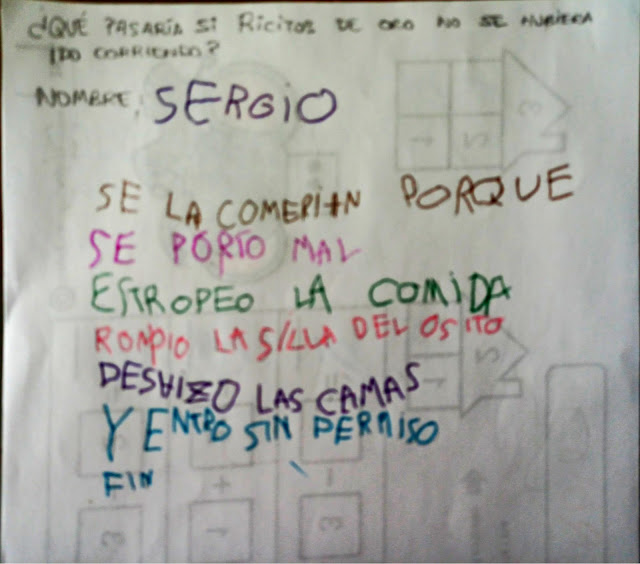 ¿QUÉ PASARÍA SI RICITOS DE ORO NO SE HUBIERA
IDO CORRIENDO?
NOMBRE: SERGIO
SE LA COMERIAN PORQUE
SE PORTO MAL
ESTROPEO LA COMIDA
ROMPIO LA SILLA DEL OSITO
DESHIZO LAS CAMAS
Y ENTRO SIN PERMISO
FIN